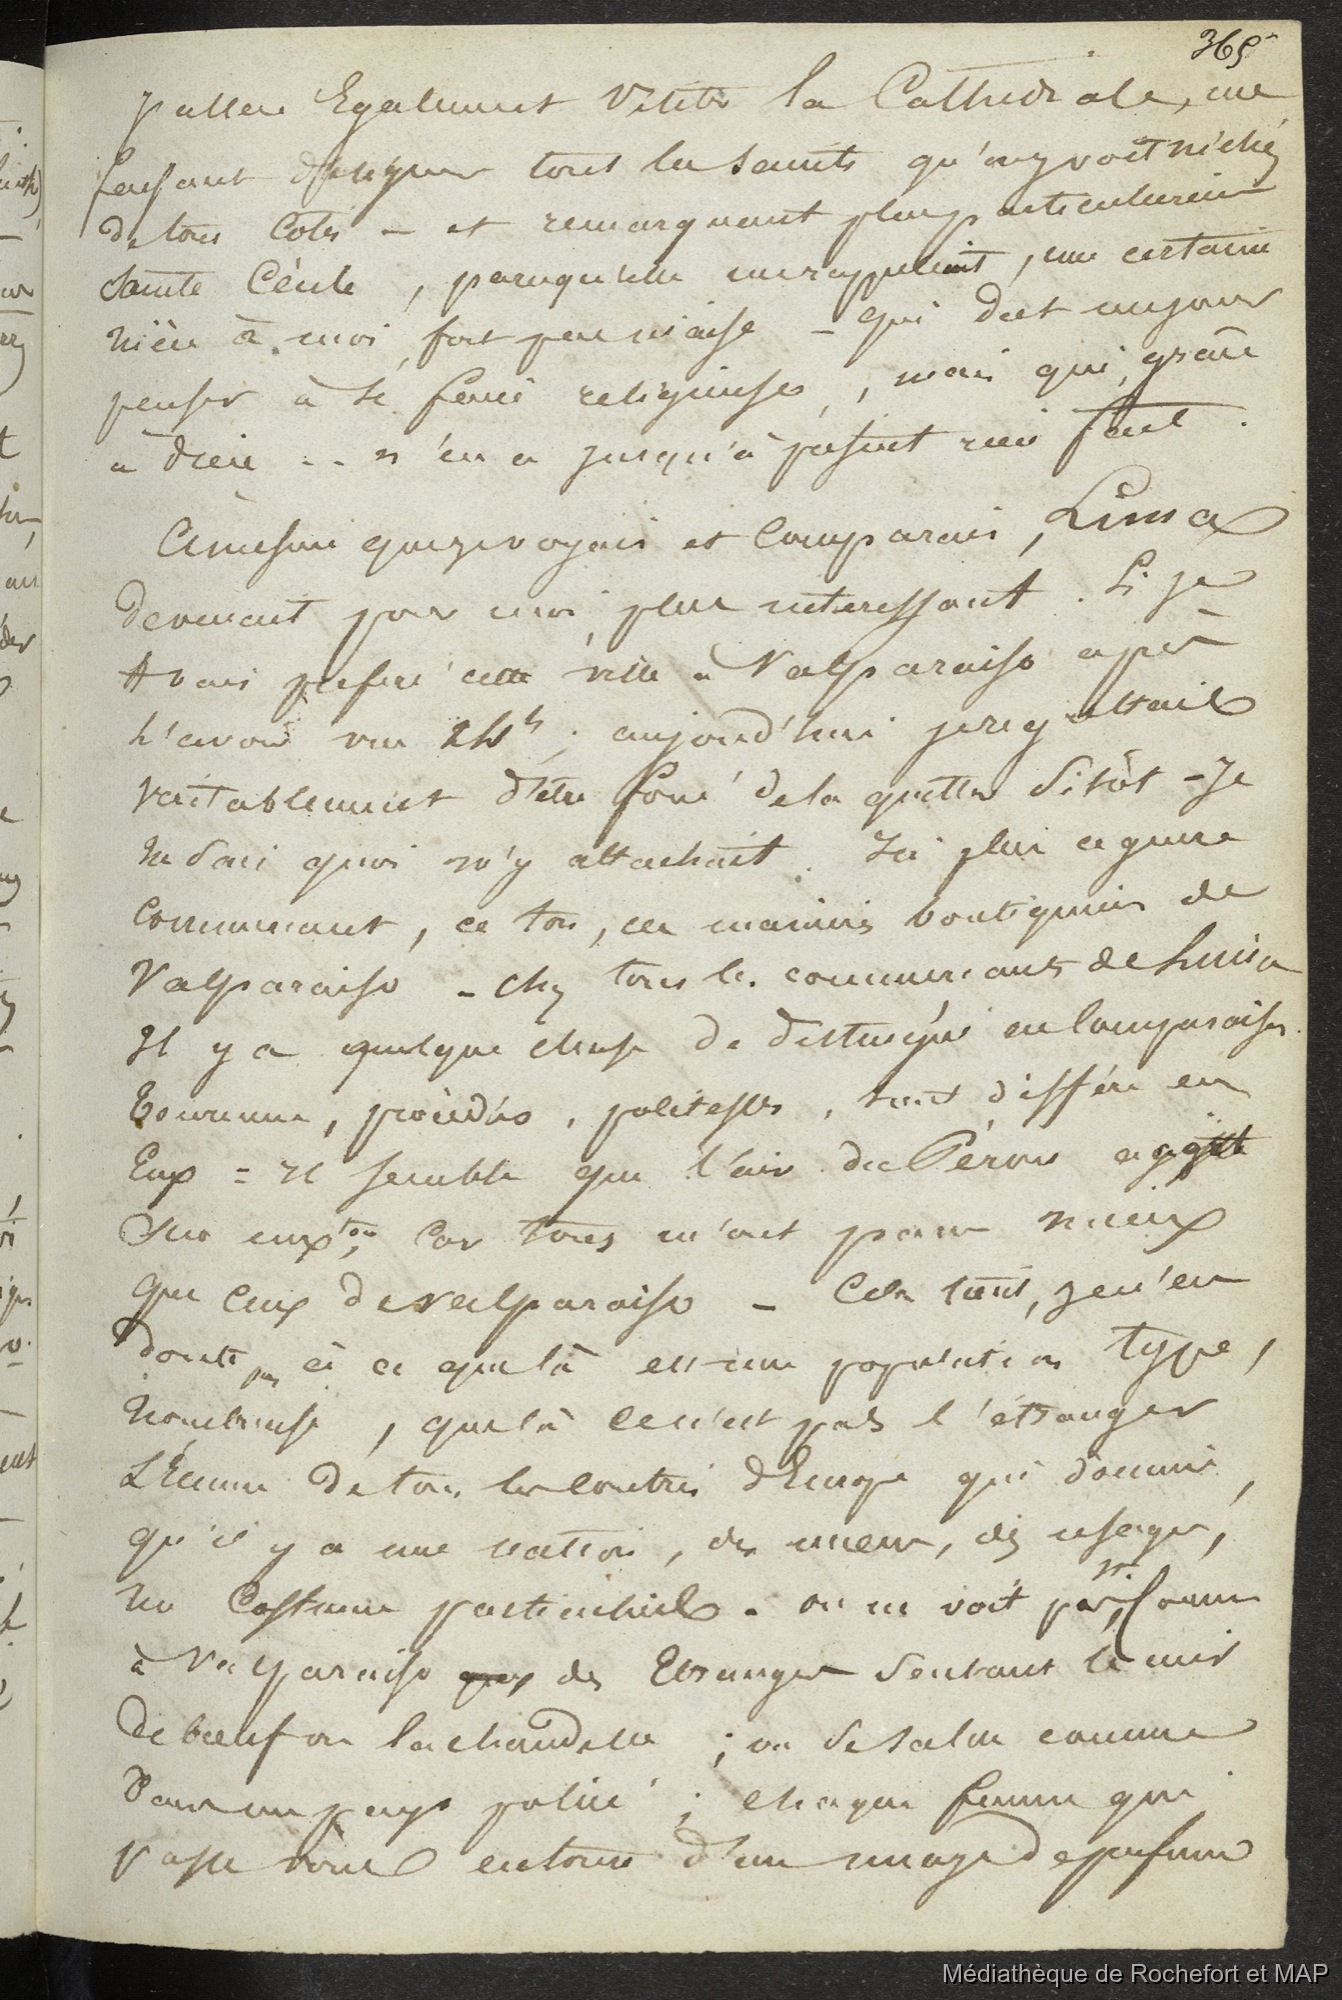 365
J'allai Egalement visiter la Cathédrale, me
faisant désigner tout les saints qu'on y voit nichés
de tous Cotés – et remarquant plus particulièrement
Sainte Cécile, parcequ'elle me rappelait, une certaine
nièce à moi, fort peu niaise – qui doit un jour
penser à se faire religieuse, mais qui, grâce
à dieu .. n'en a jusqu'à présent rien fait.
A mesure que je voyais et Comparais, Lima
devenait pour moi, plus interessant. Si je
Avais préféré cette ville à Valparaiso après
l'avoir vue 24h; aujourd'hui je regrettais
véritablement d'être forcé de la quitter Sitôt – Je
ne Sais quoi m'y attachait. Ici plus ce genre
Commun, ce ton, ces manières boutiquieres de
Valparaiso – Chez tous les commerçants de Lima
Il y a quelque chose de distingué en Comparaison.
Tournure, procédés, politesse, tout diffère en
Eux = Il semble que l'air du Pérou a agi
Sur eux, Car tous m'ont paru mieux
que Ceux de Valparaiso – Cela tient, je n'en
doute pas à ce que là est une population type,
Nombreuse, que là ce n'est pas l'étranger
L'Écume de tous les Contrées d'Europe qui domine,
qu'il y a une nation, des moeurs, des usages,
un Costume particulier. on ne voit pas, Comme
à Valparaiso des Etrangers Sentant le cuir
de boeuf ou la chandelle; on se salue comme
Dans un pays policé; chaque femme qui
passe vous entoure d'un nuage de parfums
Médiathèque de Rochefort et MAP